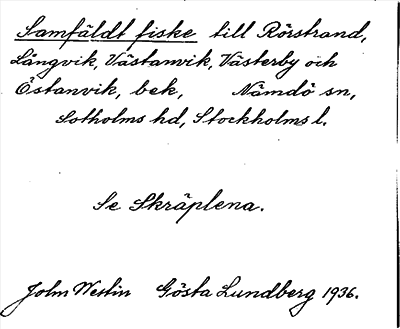 Samfäldt fiske till Rörstrand,
Långvik, Västanvik, Västerby och
Östanvik, bek, Nämdö sn,
Sotholms hd, Stockholms l.
Se Skräplena.
John Westin Gösta Lundberg 1936.